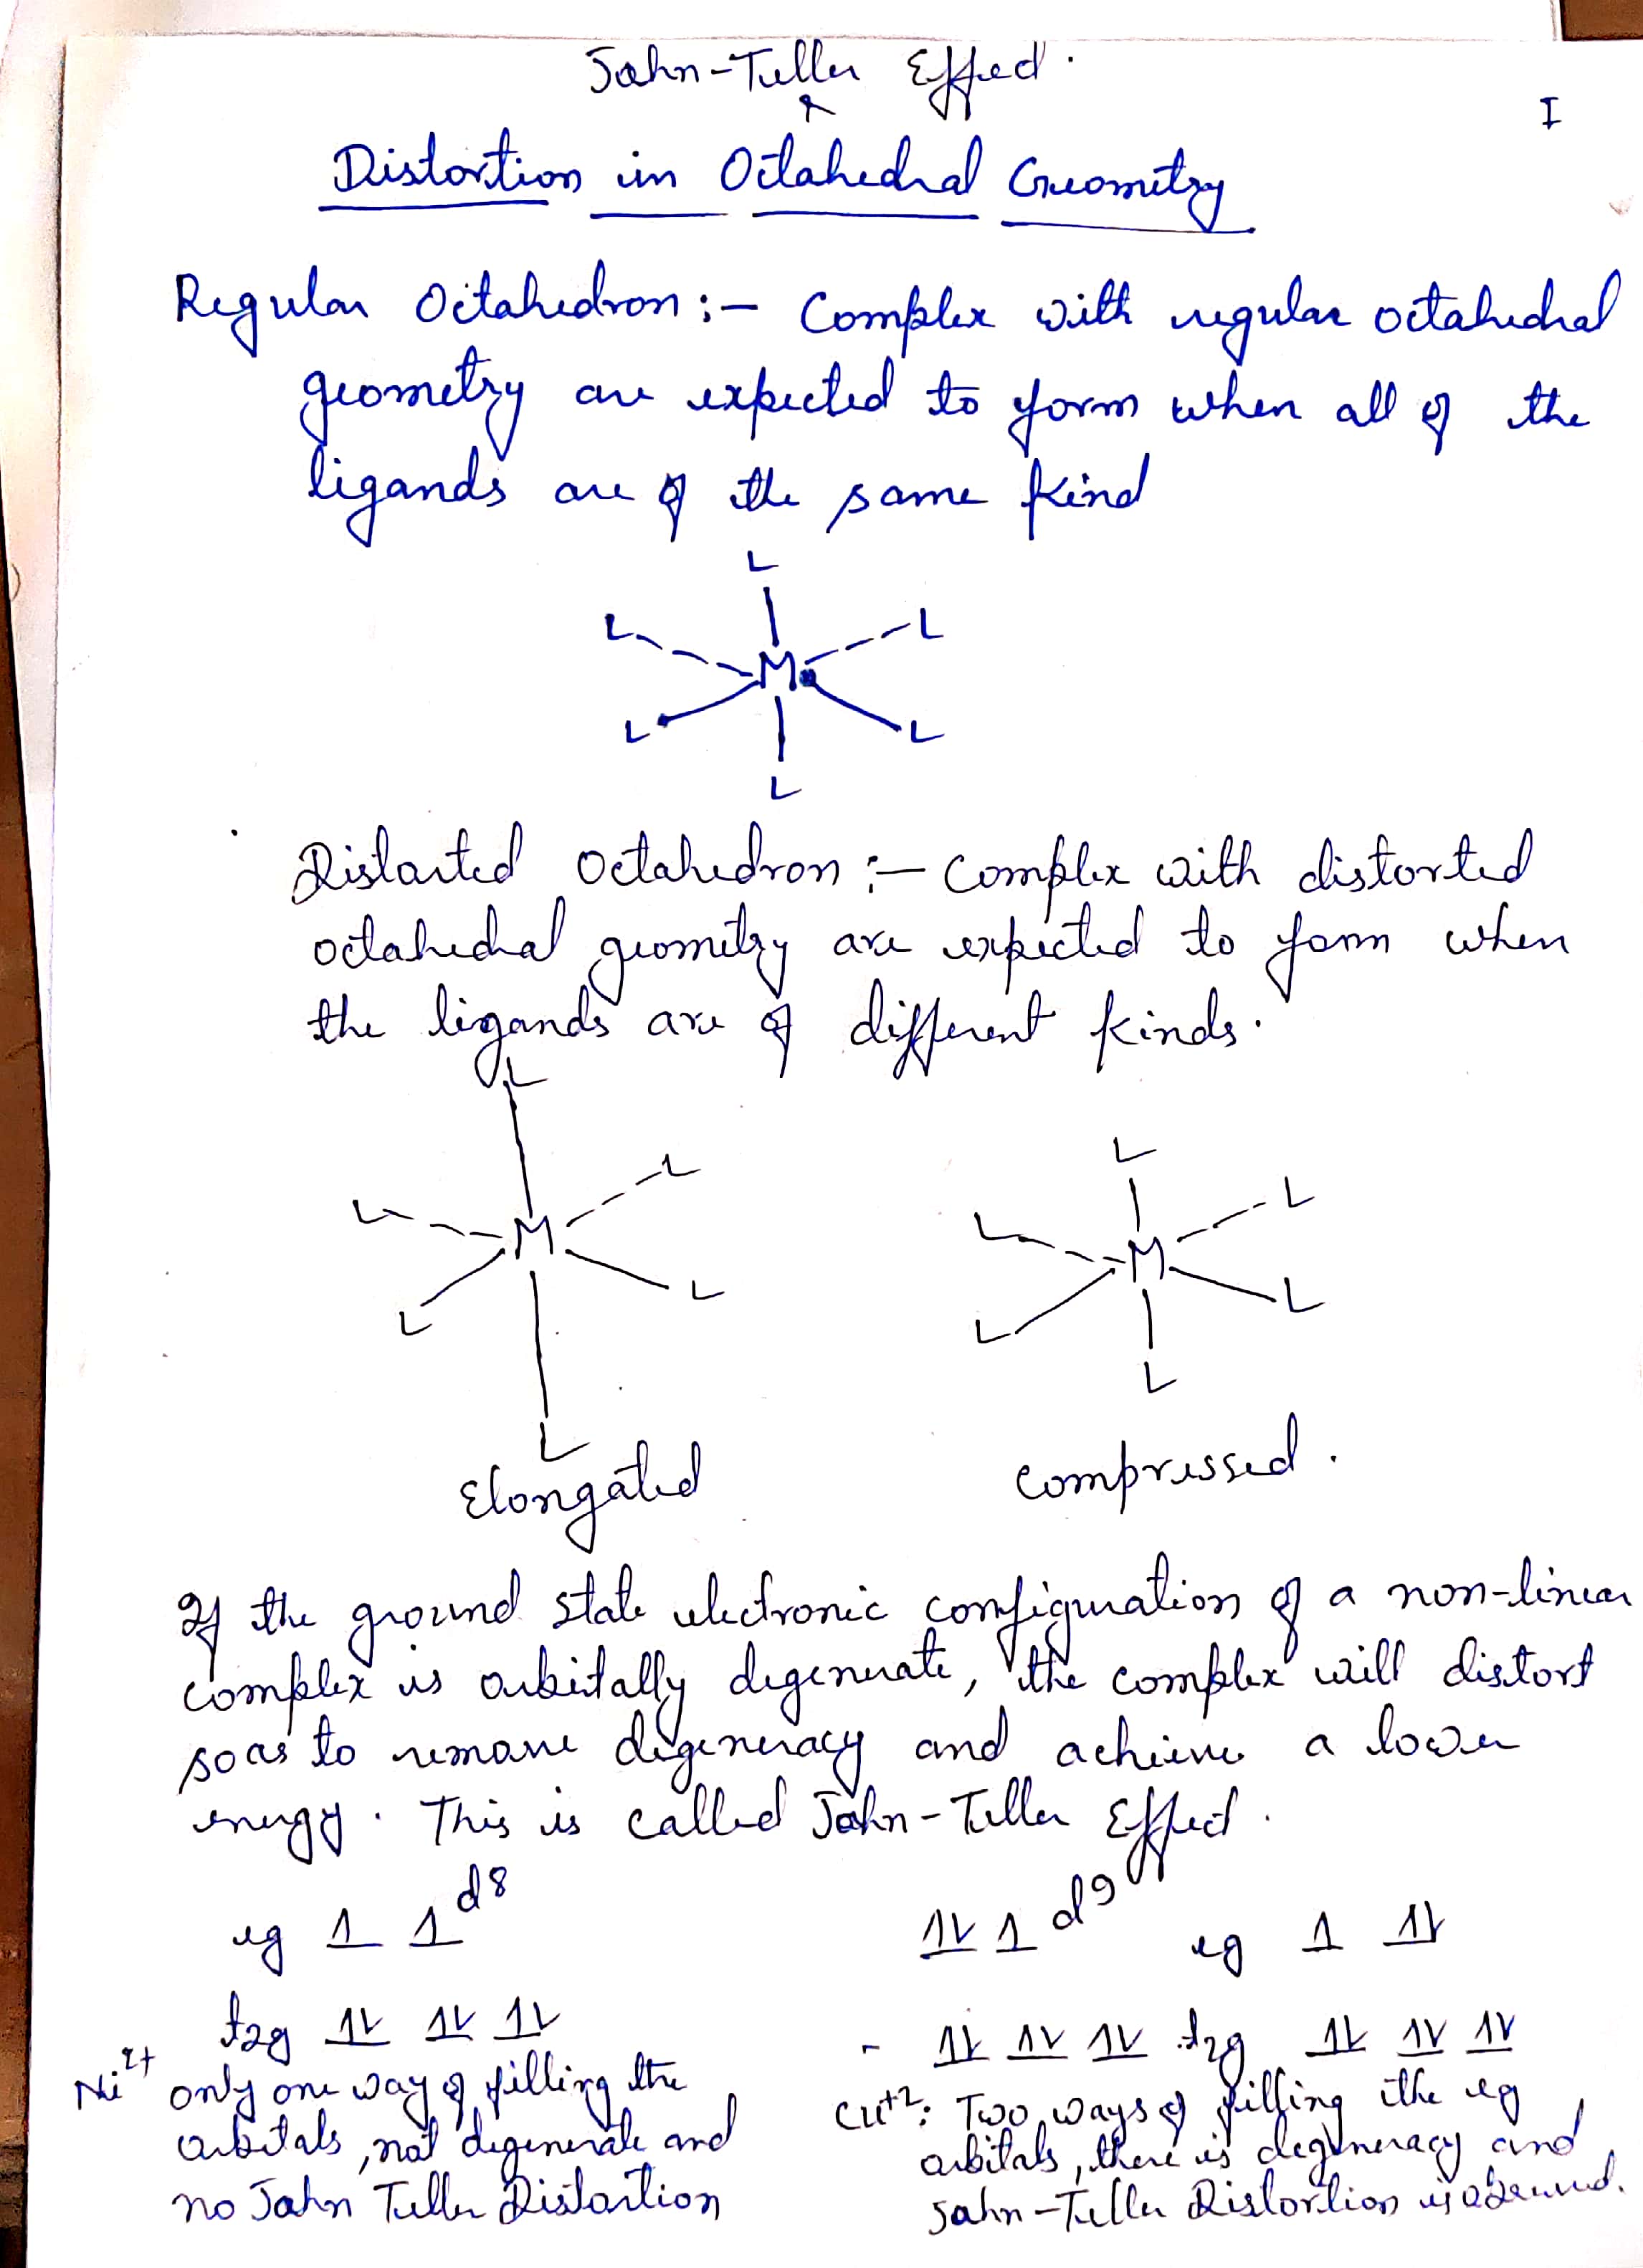 Jahn-Teller Effect.
I
Distortion in Octahedral Geometry
Regular Octahedron :- Complex with regular octahedral
geometry are expected to form when all of the
ligands are of the same kind
L
L L
M
L L
L
Distorted Octahedron :- Complex with distorted
octahedral geometry are expected to form when
the ligands are of different kinds.
L L
L L L L
M M
L L L L
L L
Elongated Compressed.
If the ground state electronic configuration of a non-linear
complex is orbitally degenerate, the complex will distort
so as to remove degeneracy and achieve a lower
energy. This is called Jahn-Teller Effect.
eg 1 1 d8 1V 1 d9 eg 1 1V
t2g 1V 1V 1V - 1V 1V 1V t2g 1V 1V 1V
Ni2+ only one way of filling the
orbitals, not degenerate and
no Jahn Teller Distortion
Cu+2: Two ways of filling the eg
orbitals, there is degeneracy and
Jahn-Teller Distortion is observed.